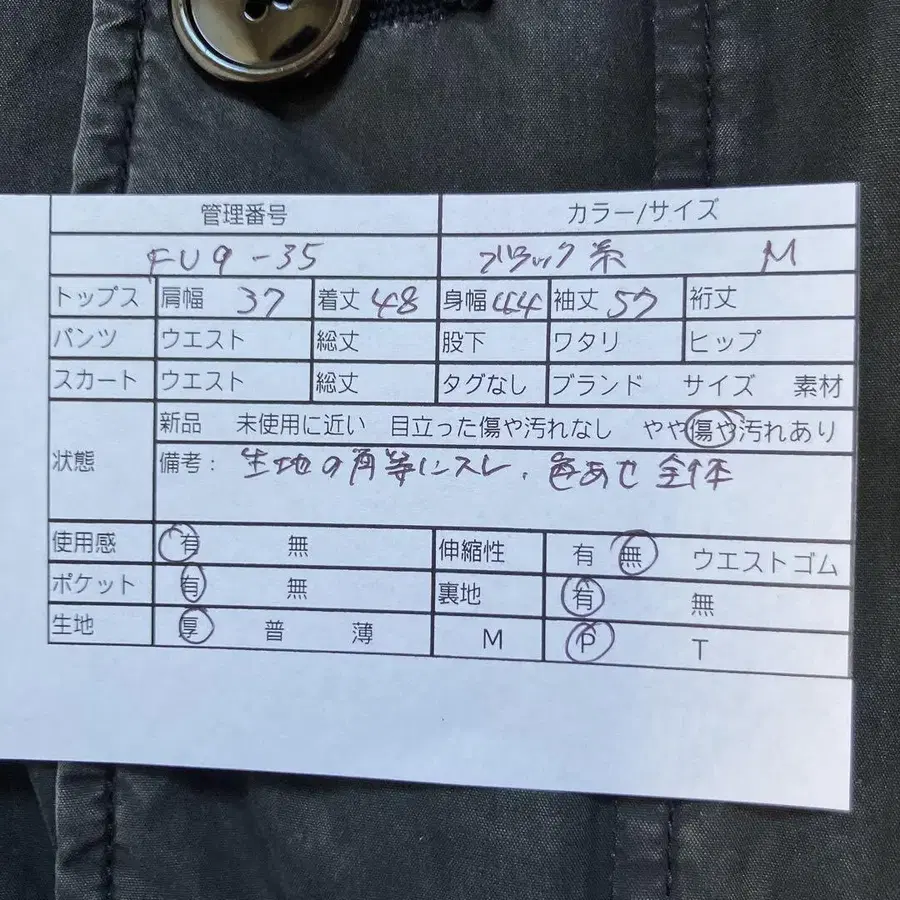 管理番号 カラー/サイズ
FU9-35 ブラック系 M
トップス 肩幅 37 着丈 48 身幅 44 袖丈 57 裄丈
パンツ ウエスト 総丈 股下 ワタリ ヒップ
スカート ウエスト 総丈 タグなし ブランド サイズ 素材
状態 新品 未使用に近い 目立った傷や汚れなし やや傷や汚れあり
備考: 生地の角等にスレ、色あせ全体
使用感 有 無 伸縮性 有 無 ウエストゴム
ポケット 有 無 裏地 有 無
生地 厚 普 薄 M P T